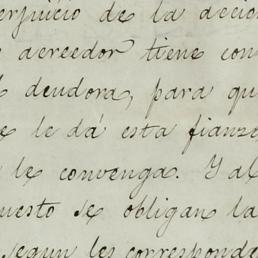 erjuicio de la decis
acreedor tiene con
deudora, para qu
e le dá esta fianz
le convenga. Y al
uesto se obligan la
segun les corresponde